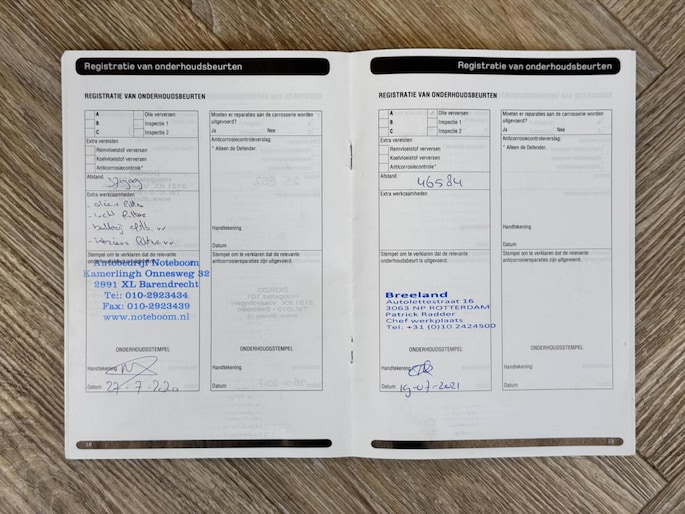 Registratie van onderhoudsbeurten
REGISTRATIE VAN ONDERHOUDSBEURTEN
A Olie verversen
B Inspectie 1
C Inspectie 2
Extra vereisten
Remvloeistof verversen
Koelvloeistof verversen
Anticorrosiecontrole*
Afstand
Extra werkzaamheden
- filter
- lucht filter
- batterij afstb. vv
- interieur filter vv
Stempel om te verklaren dat de relevante
Autobedrijf Noteboom
Kamerlingh Onnesweg 32
2991 XL Barendrecht
Tel: 010-2923434
Fax: 010-2923439
www.noteboom.nl
ONDERHOUDSSTEMPEL
Handtekening
Datum 27-7-2020
Moeten er reparaties aan de carrosserie worden
uitgevoerd?
Ja Nee
Anticorrosiecontroleverslag:
* Alleen de Defender.
Handtekening
Datum
Stempel om te verklaren dat de relevante
anticorrosiereparaties zijn uitgevoerd.
ONDERHOUDSSTEMPEL
Handtekening
Datum
Registratie van onderhoudsbeurten
REGISTRATIE VAN ONDERHOUDSBEURTEN
A Olie verversen
B Inspectie 1
C Inspectie 2
Extra vereisten
Remvloeistof verversen
Koelvloeistof verversen
Anticorrosiecontrole*
Afstand 46584
Extra werkzaamheden
Stempel om te verklaren dat de relevante
onderhoudsbeurt is uitgevoerd.
Breeland
Autolettestraat 16
3063 NP ROTTERDAM
Patrick Radder
Chef werkplaats
Tel: +31 (0)10 2424500
ONDERHOUDSSTEMPEL
Handtekening
Datum 19-07-2021
Moeten er reparaties aan de carrosserie worden
uitgevoerd?
Ja Nee
Anticorrosiecontroleverslag:
* Alleen de Defender.
Handtekening
Datum
Stempel om te verklaren dat de relevante
anticorrosiereparaties zijn uitgevoerd.
ONDERHOUDSSTEMPEL
Handtekening
Datum